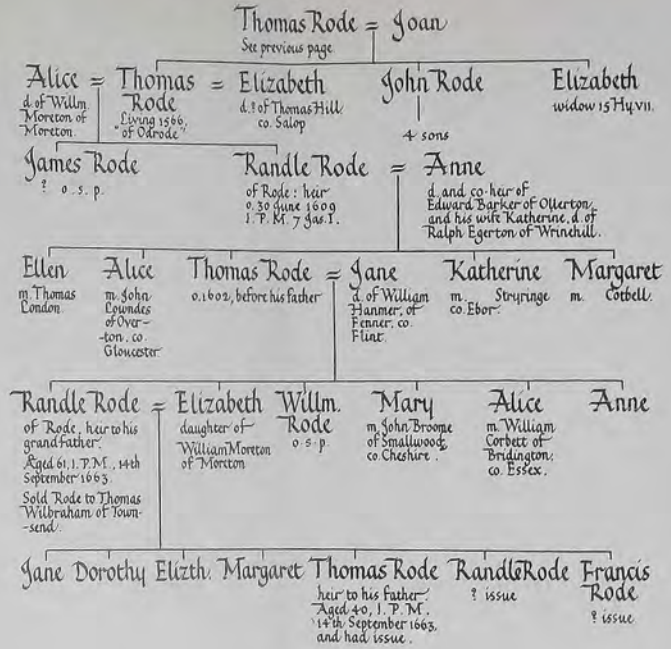 Thomas Rode = Joan
See previous page
Alice = Thomas Rode = Elizabeth John Rode Elizabeth
d. of Willm. Moreton of Moreton.
Living 1566, "of Odrode"
d. ? of Thomas Hill co. Salop
4 sons
widow 15 Hy. VII.
James Rode
? o. s. p.
Randle Rode = Anne
of Rode : heir
o. 30 June 1609
I. P. M. 7 Jas. I.
d. and co-heir of
Edward Barker of Ollerton,
and his wife Katherine, d. of
Ralph Egerton of Wrinehill.
Ellen
m. Thomas
London.
Alice
m. John
Lowndes
of Over-
-ton, co.
Gloucester
Thomas Rode = Jane
o. 1602, before his father
d. of William
Hanmer, of
Fenner, co.
Flint.
Katherine
m. Stryringe
co. Ebor.
Margaret
m. Cotbell.
Randle Rode = Elizabeth
of Rode, heir to his
grandfather.
Aged 61, I. P. M., 14th
September 1663.
Sold Rode to Thomas
Wilbraham of Town-
-send.
daughter of
William Moreton
of Moreton
Willm.
Rode
o. s. p.
Mary
m. John Broome
of Smallwood,
co. Cheshire.
Alice
m. William
Corbett of
Bridington,
co. Essex.
Anne
Jane Dorothy Elizth. Margaret Thomas Rode Randle Rode Francis Rode
heir to his father.
Aged 40, I. P. M.
14th September 1663,
and had issue.
? issue
? issue